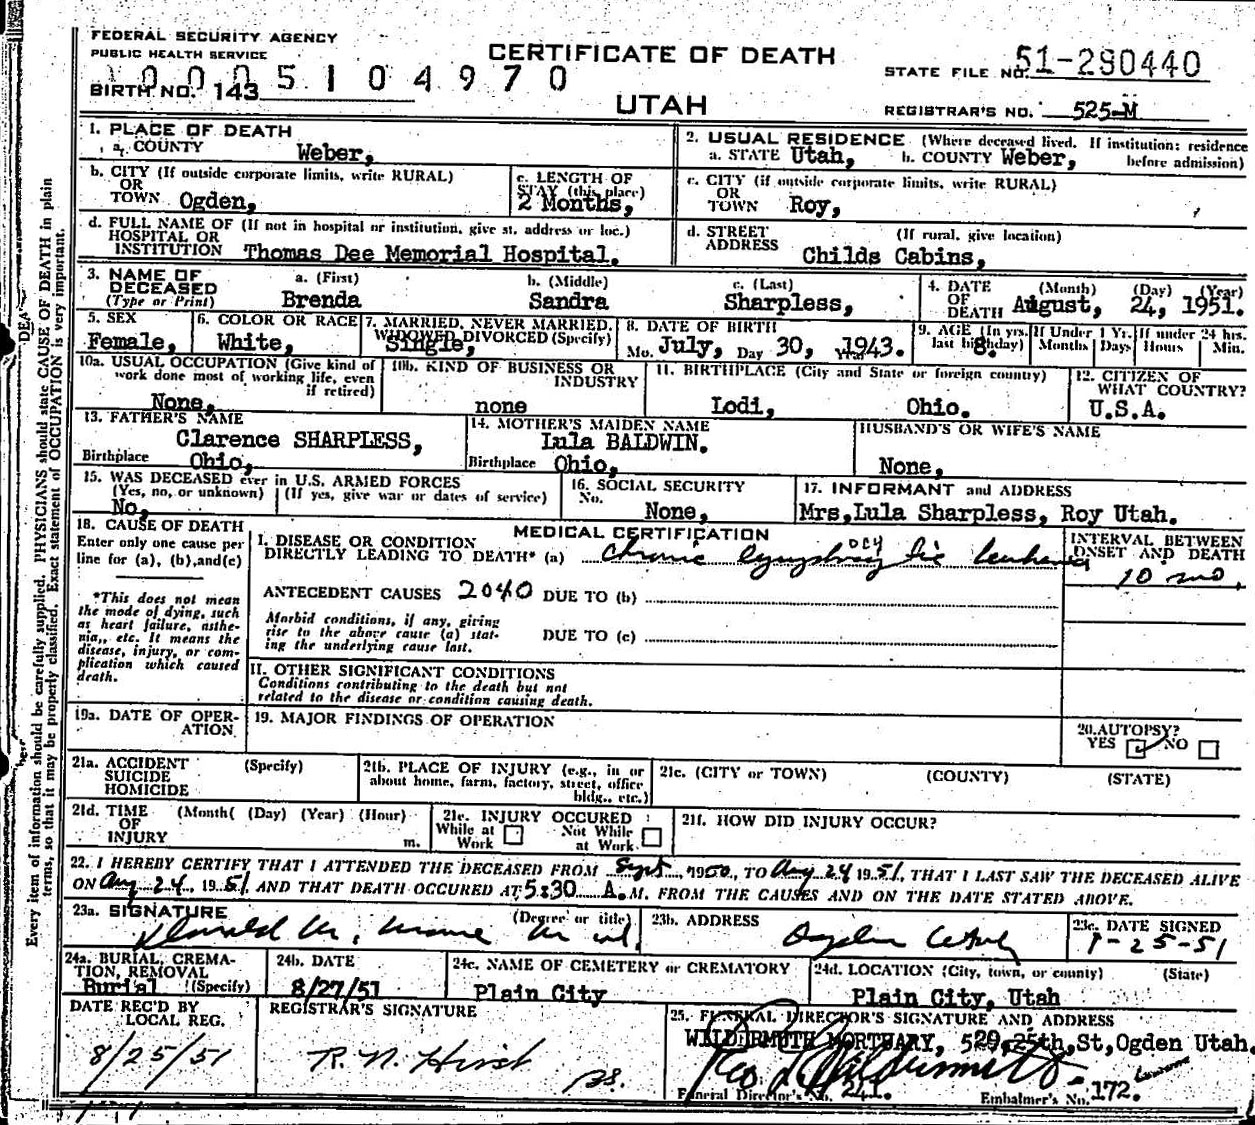 FEDERAL SECURITY AGENCY
PUBLIC HEALTH SERVICE
CERTIFICATE OF DEATH
UTAH
STATE FILE NO. 51-290440
0005104970
BIRTH NO. 143
REGISTRAR'S NO. 525-M
1. PLACE OF DEATH
a. COUNTY Weber,
2. USUAL RESIDENCE (Where deceased lived. If institution: residence before admission)
a. STATE Utah, b. COUNTY Weber,
b. CITY (If outside corporate limits, write RURAL)
OR
TOWN Ogden,
c. LENGTH OF
STAY (this place)
2 Months,
c. CITY (if outside corporate limits, write RURAL)
OR
TOWN Roy,
d. FULL NAME OF (If not in hospital or institution, give st. address or loc.)
HOSPITAL OR
INSTITUTION Thomas Dee Memorial Hospital.
d. STREET (If rural, give location)
ADDRESS Childs Cabins,
3. NAME OF DECEASED
(Type or Print)
a. (First) b. (Middle) c. (Last)
Brenda Sandra Sharpless,
4. DATE OF DEATH (Month) (Day) (Year)
August, 24, 1951.
5. SEX
Female,
6. COLOR OR RACE
White,
7. MARRIED, NEVER MARRIED,
WIDOWED, DIVORCED (Specify)
Single,
8. DATE OF BIRTH
Mo. July, Day 30, Year 1943.
9. AGE (In yrs. last birthday) 8.
If Under 1 Yr. Months Days
If under 24 hrs. Hours Min.
10a. USUAL OCCUPATION (Give kind of
work done most of working life, even
if retired)
None,
10b. KIND OF BUSINESS OR
INDUSTRY
none
11. BIRTHPLACE (City and State or foreign country)
Lodi, Ohio.
12. CITIZEN OF
WHAT COUNTRY?
U.S.A.
13. FATHER'S NAME
Clarence SHARPLESS,
Birthplace Ohio,
14. MOTHER'S MAIDEN NAME
Lula BALDWIN.
Birthplace Ohio,
HUSBAND'S OR WIFE'S NAME
None,
15. WAS DECEASED ever in U.S. ARMED FORCES
(Yes, no, or unknown) (If yes, give war or dates of service)
No,
16. SOCIAL SECURITY
No.
None,
17. INFORMANT and ADDRESS
Mrs,Lula Sharpless, Roy Utah.
18. CAUSE OF DEATH
Enter only one cause per
line for (a), (b),and(c)
*This does not mean
the mode of dying, such
as heart failure, asthe-
nia,, etc. It means the
disease, injury, or com-
plication which caused
death.
MEDICAL CERTIFICATION
I. DISEASE OR CONDITION
DIRECTLY LEADING TO DEATH* (a) Chronic lymphocytic leukemia
INTERVAL BETWEEN
ONSET AND DEATH
10 mo,
ANTECEDENT CAUSES 2040 DUE TO (b)
Morbid conditions, if any, giving
rise to the above cause (a) stat-
ing the underlying cause last.
DUE TO (c)
II. OTHER SIGNIFICANT CONDITIONS
Conditions contributing to the death but not
related to the disease or condition causing death.
19a. DATE OF OPER-
ATION
19. MAJOR FINDINGS OF OPERATION
20. AUTOPSY?
YES ☑ NO ☐
21a. ACCIDENT (Specify)
SUICIDE
HOMICIDE
21b. PLACE OF INJURY (e.g., in or
about home, farm, factory, street, office
bldg., etc.)
21c. (CITY or TOWN) (COUNTY) (STATE)
21d. TIME (Month( (Day) (Year) (Hour)
OF
INJURY m.
21e. INJURY OCCURED
While at Work ☐ Not While at Work ☐
21f. HOW DID INJURY OCCUR?
22. I HEREBY CERTIFY THAT I ATTENDED THE DECEASED FROM Sept, 1950, TO Aug 24 1951, THAT I LAST SAW THE DECEASED ALIVE
ON Aug 24, 1951, AND THAT DEATH OCCURED AT 5:30 A.M. FROM THE CAUSES AND ON THE DATE STATED ABOVE.
23a. SIGNATURE (Degree or title)
Donald M. Moore M.D.
23b. ADDRESS
Ogden Utah
23c. DATE SIGNED
-25-51
24a. BURIAL, CREMA-
TION, REMOVAL
(Specify)
Burial
24b. DATE
8/27/51
24c. NAME OF CEMETERY or CREMATORY
Plain City
24d. LOCATION (City, town, or county) (State)
Plain City, Utah
DATE REC'D BY
LOCAL REG.
8/25/51
REGISTRAR'S SIGNATURE
R. N. Hirst
25. FUNERAL DIRECTOR'S SIGNATURE AND ADDRESS
WILDERMUTH MORTUARY, 529,25th,St,Ogden Utah.
Funeral Director's No. 241.
Embalmer's No. 172.
Every item of information should be carefully supplied. PHYSICIANS should state CAUSE OF DEATH in plain
terms, so that it may be properly classified. Exact statement of OCCUPATION is very important.